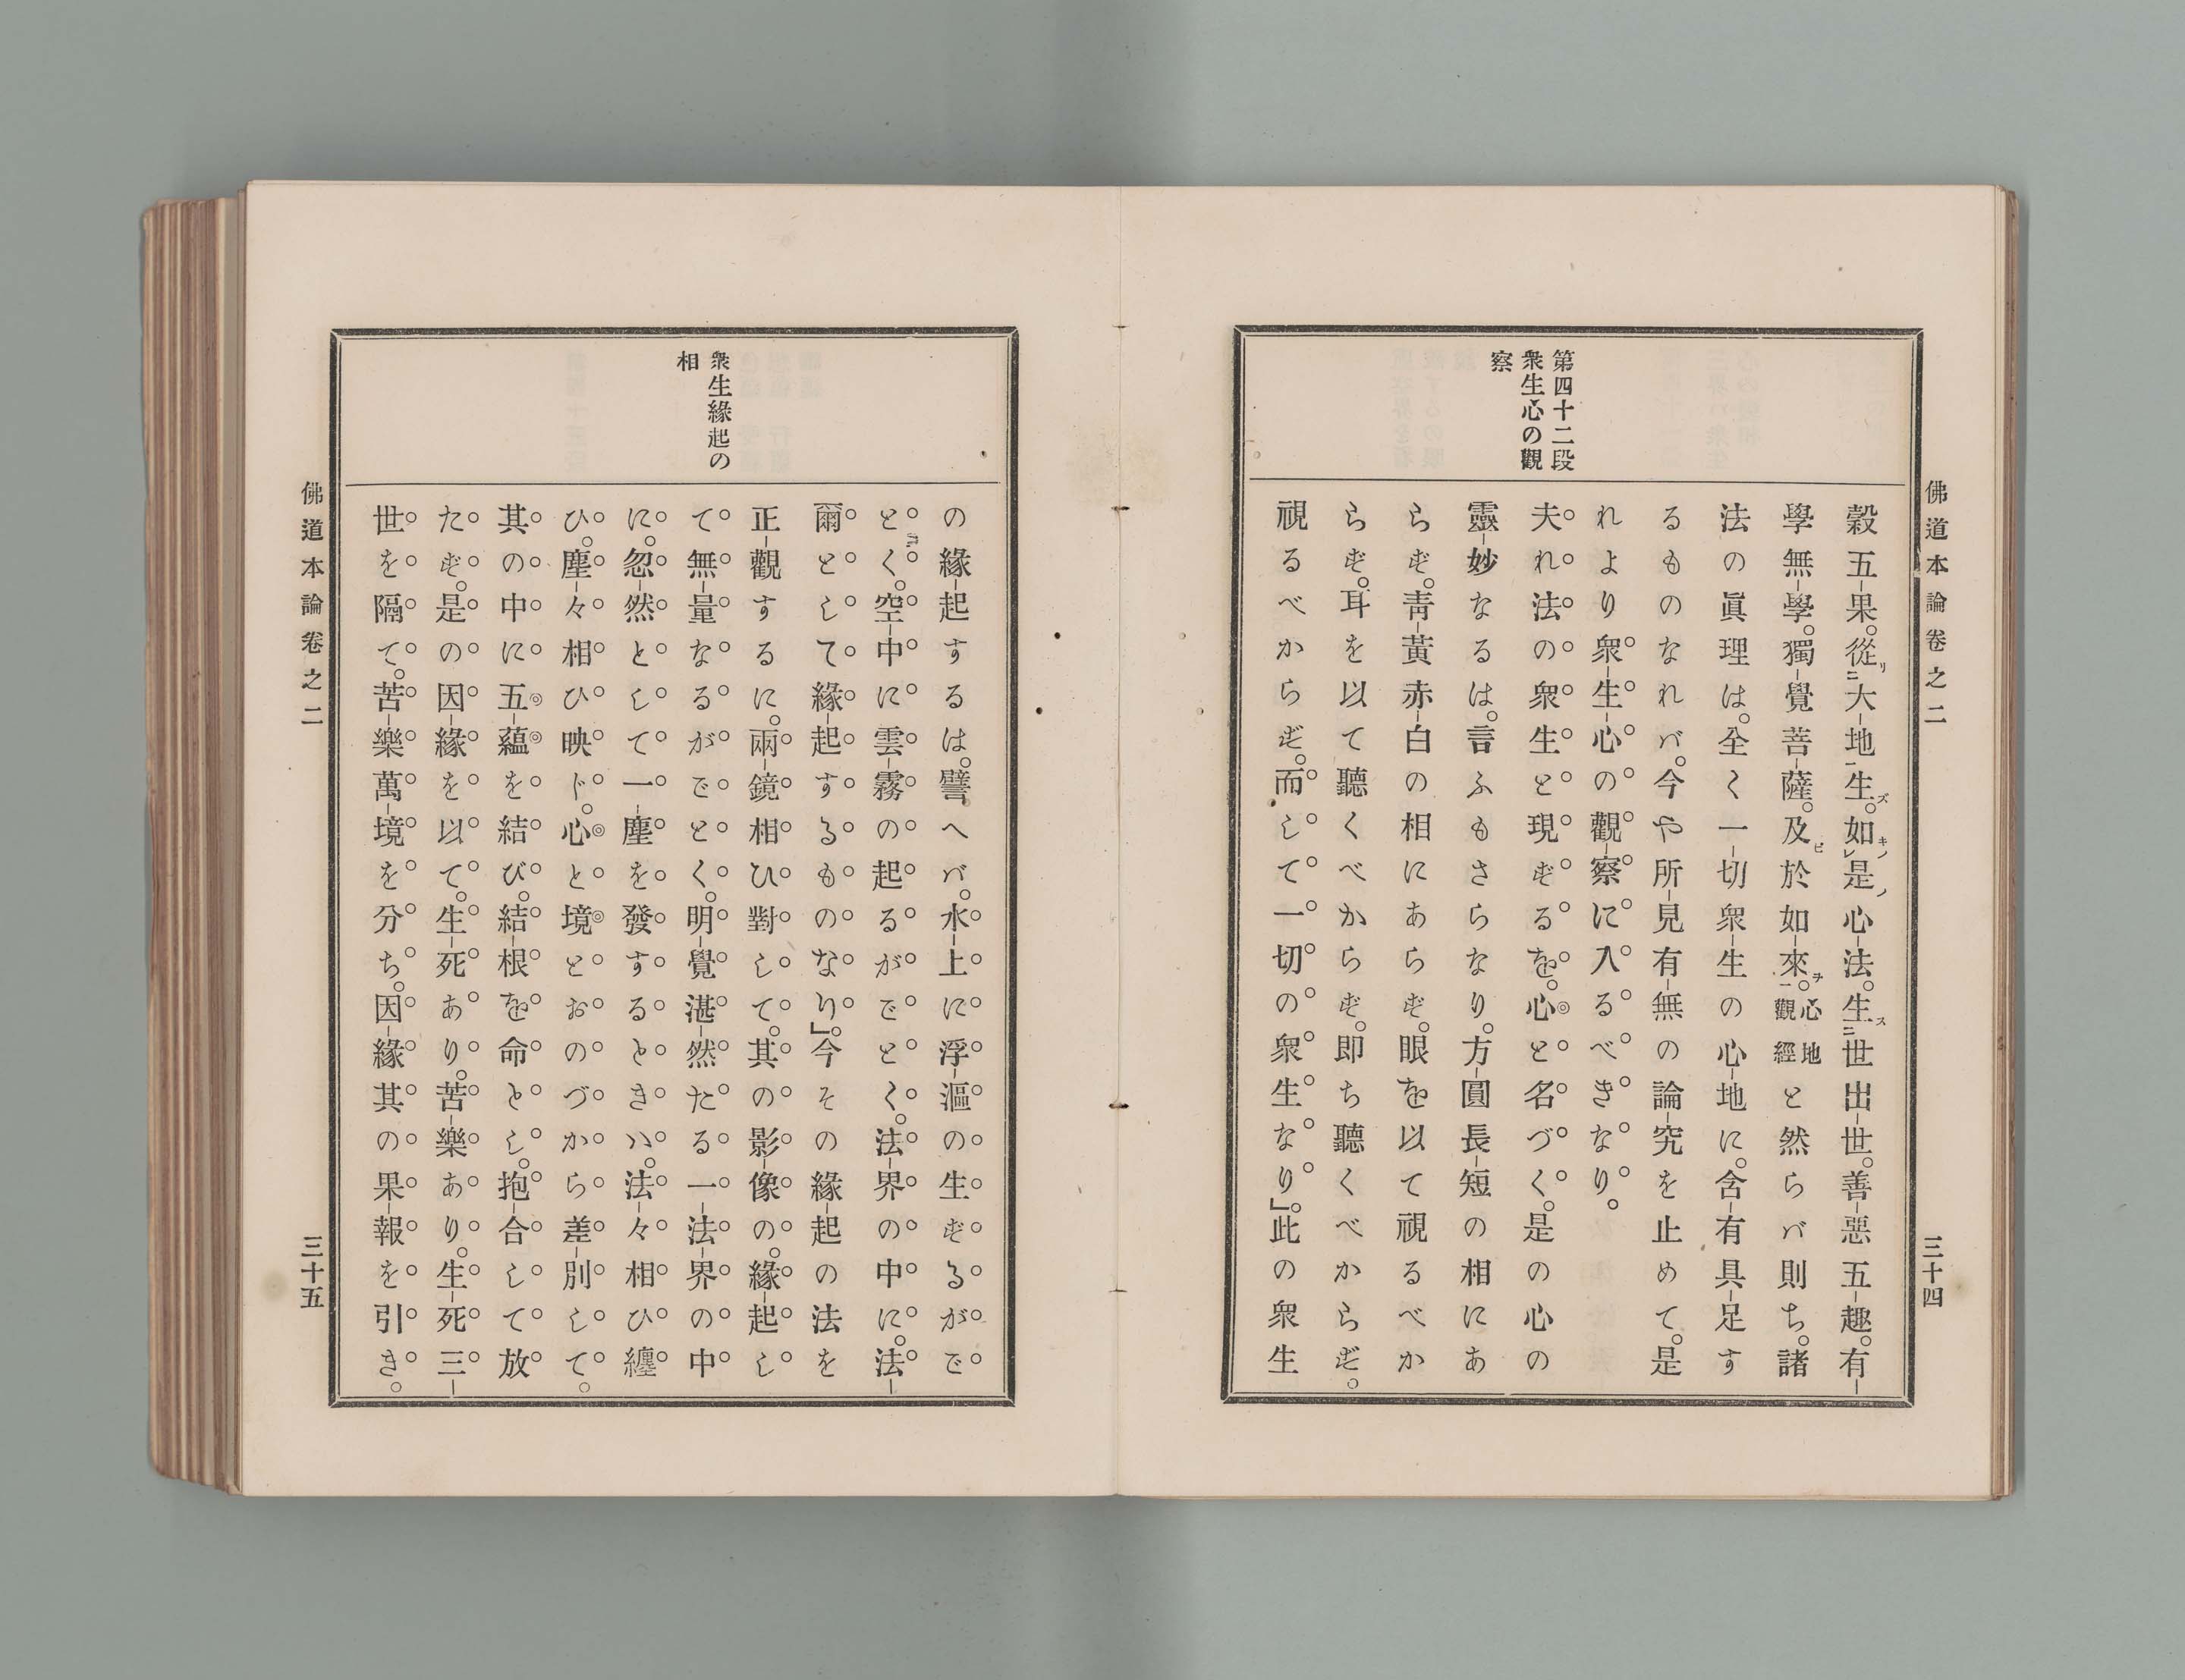 佛道本論卷之二
三十四
第四十二段
衆生心の觀
察
穀五-果。從リ二大-地一生ズ。如キノレ是ノ心-法。生ス二世出-世。善-惡五-趣。有-
學無-學。獨-覺菩-薩。及ビ於如-來ヲ一。心地觀經と然らバ則ち。諸
法の眞理は。全く一-切衆-生の心-地に。含-有具-足す
るものなれバ。今や所-見有-無の論-究を止めて。是
れより衆-生-心の觀-察に入るべきなり。
夫れ法の衆生と現ずるを。心と名づく。是の心の
靈-妙なるは。言ふもさらなり。方-圓長-短の相にあ
らず。靑-黃赤-白の相にあらず。眼を以て視るべか
らず。耳を以て聽くべからず。即ち聽くべからず。
視るべからず。而して一切の衆生なり」。此の衆生
衆生緣起の
相
の緣-起するは。譬へバ。水-上に浮-漚の生ずるがご
とく。空-中に雲-霧の起るがごとく。法-界の中に。法-
爾として緣-起するものなり」。今その緣-起の法を
正-觀するに。兩-鏡相ひ對して。其の影-像の。緣-起し
て無-量なるがごとく。明-覺湛-然たる一-法-界の中
に。忽-然として一-塵を發するときハ。法-々相ひ纏
ひ。塵-々相ひ映ド。心と境とおのづから差-別して。
其の中に五-蘊を結び。結-根を命とし。抱-合して放
たず。是の因-緣を以て。生-死あり。苦-樂あり。生-死三-
世を隔て。苦-樂萬-境を分ち。因-緣其の果-報を引き。
佛道本論卷之二
三十五